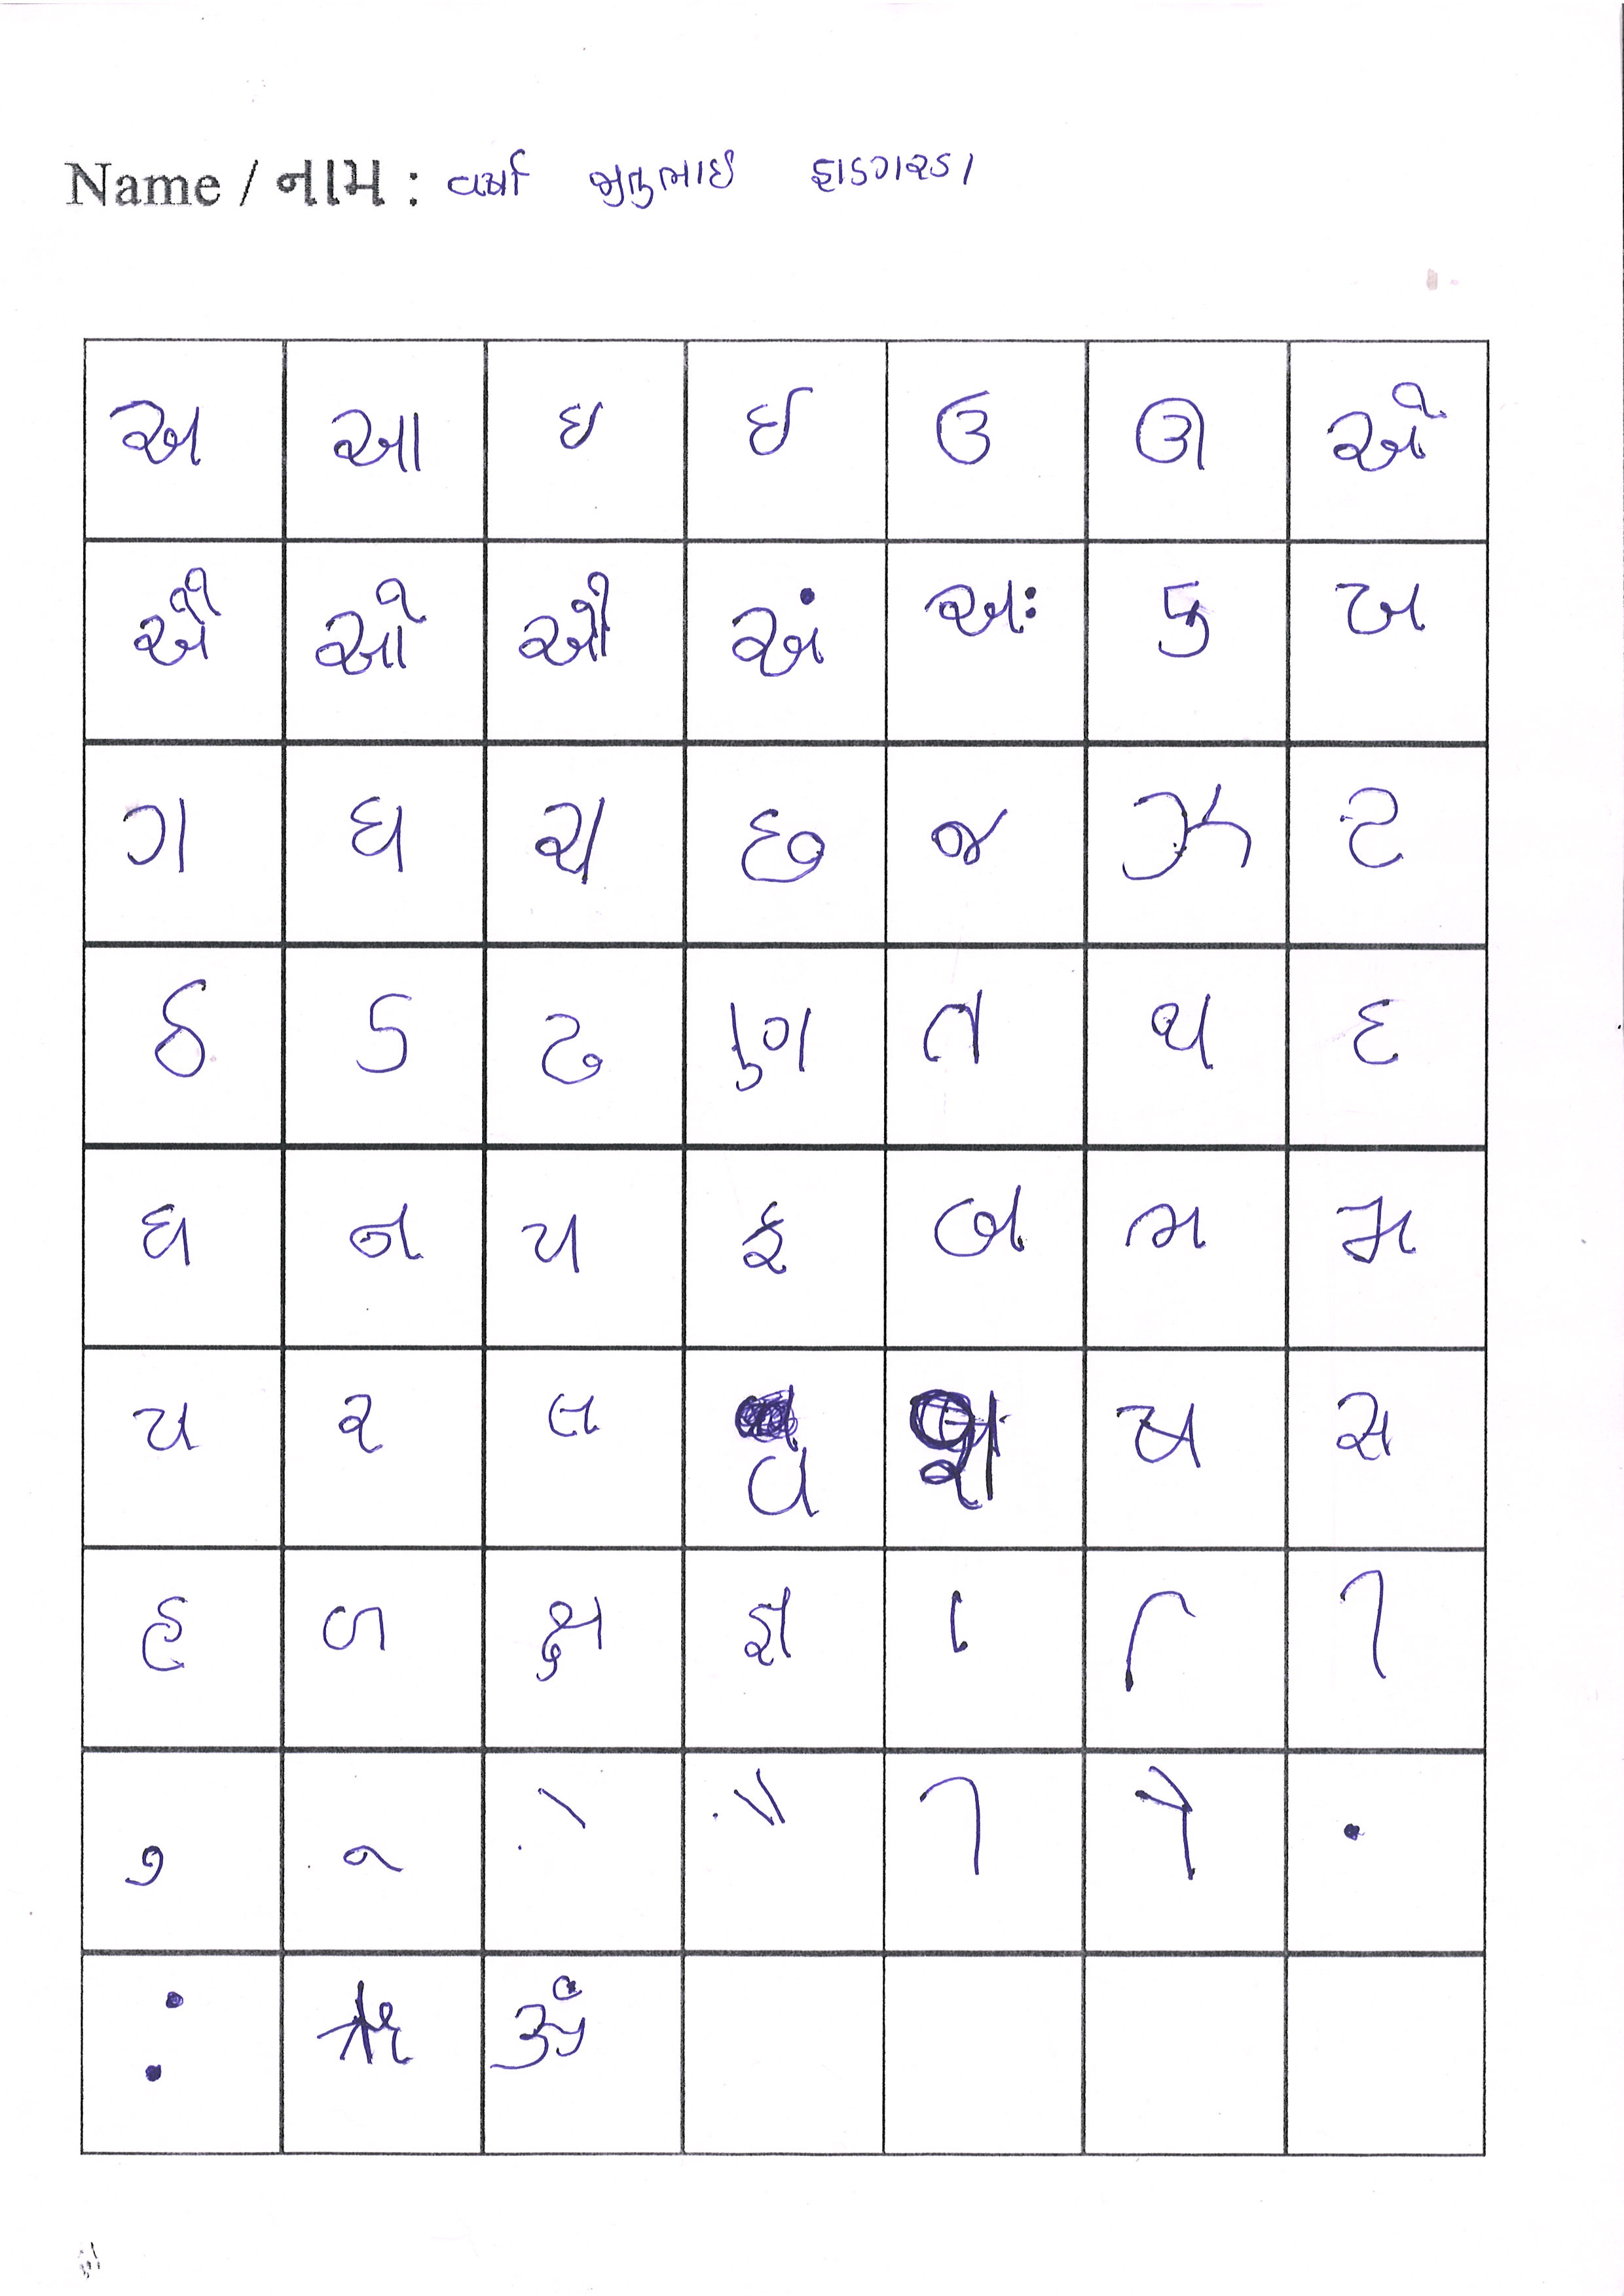 Name / નામ : વર્ષા જીતુભાઈ
અ આ ઇ ઈ ઉ ઊ એ
ઐ ઓ ઔ અં અઃ ક ખ
ગ ઘ ચ છ જ ઝ ટ
ઠ ડ ઢ ણ ત થ દ
ધ ન પ ફ બ ભ મ
ય ર લ વ શ ષ સ
હ ળ ક્ષ જ્ઞ ા િ ી
ુ ૂ ે ૈ ો ૌ ં
ઃ ઋ ૐ